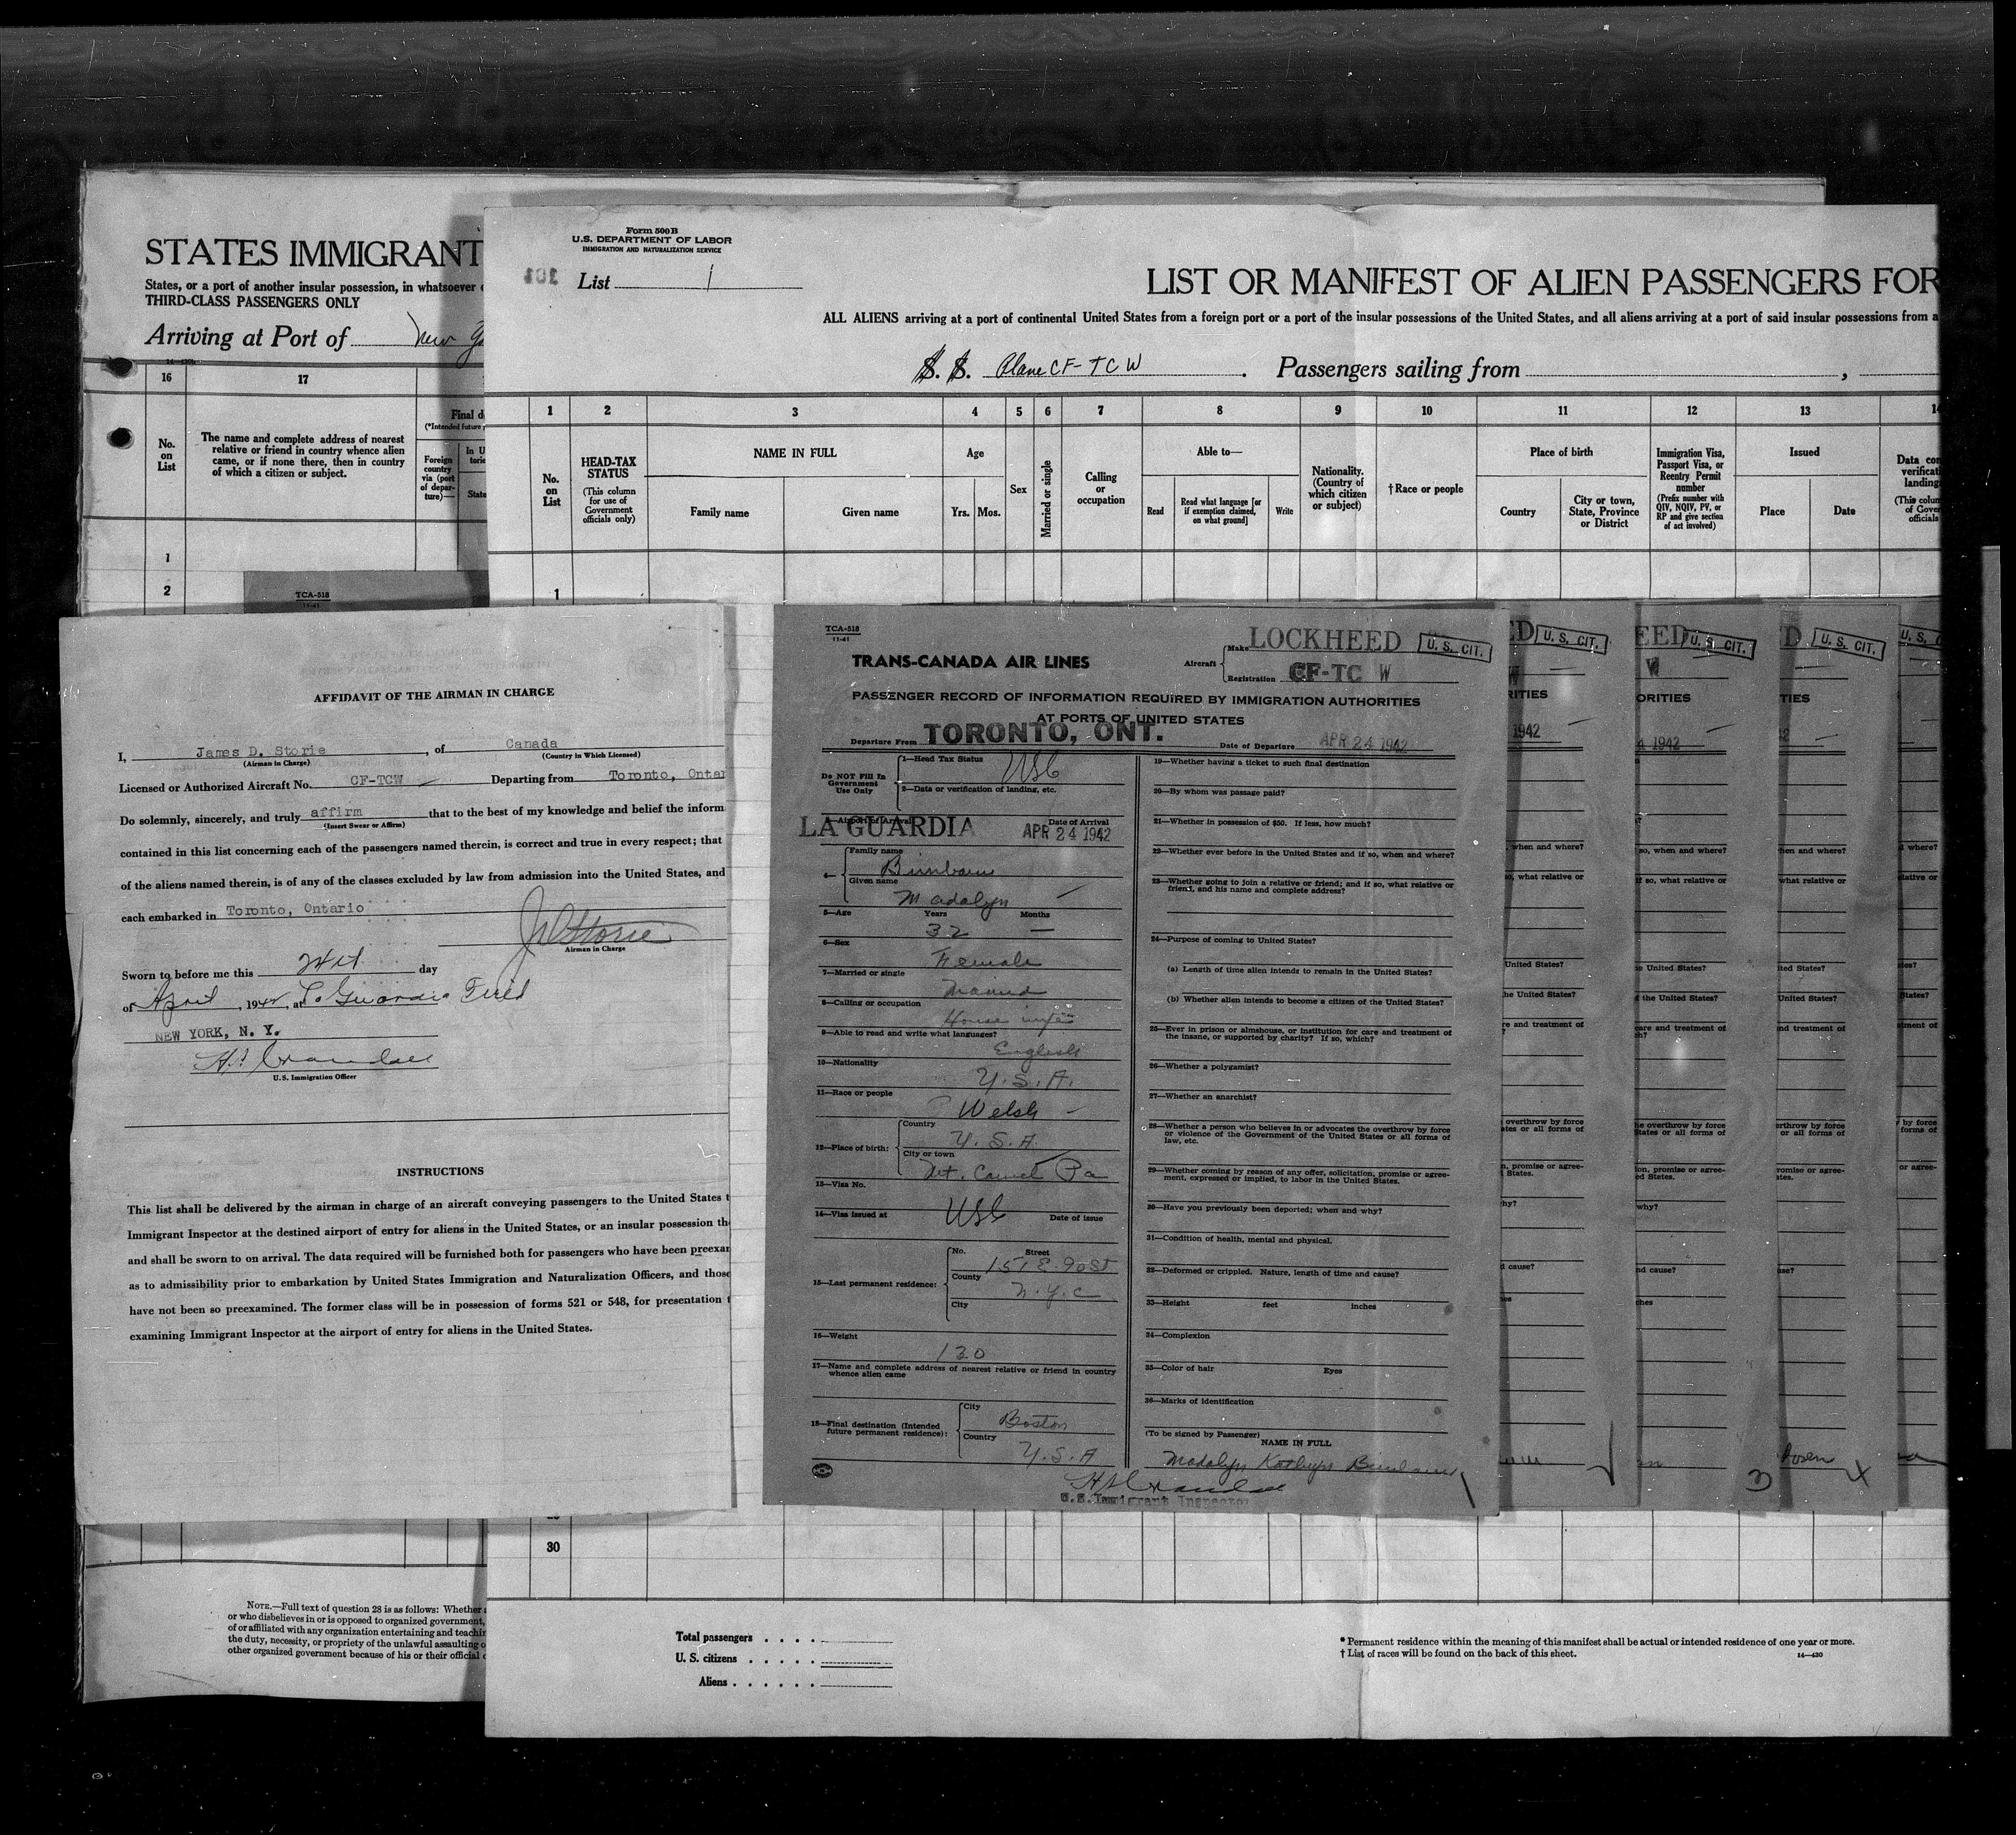 STATES IMMIGRANT
States, or a port of another insular possession, in whatsoever
THIRD-CLASS PASSENGERS ONLY
Arriving at Port of New
16
17
No.
on
List
The name and complete address of nearest
relative or friend in country whence alien
came, or if none there, then in country
of which a citizen or subject.
Final d
(*Intended future
Foreign
country
via (port
of depar-
ture)—
In U
State
1
2
TCA-518
11-41
Form 500B
U.S. DEPARTMENT OF LABOR
IMMIGRATION AND NATURALIZATION SERVICE
List 1
LIST OR MANIFEST OF ALIEN PASSENGERS FOR
ALL ALIENS arriving at a port of continental United States from a foreign port or a port of the insular possessions of the United States, and all aliens arriving at a port of said insular possessions from a
S. S. Plane CF-TCW. Passengers sailing from ,
1 2 3 4 5 6 7 8 9 10 11 12 13 14
No.
on
List
HEAD-TAX
STATUS
(This column
for use of
Government
officials only)
NAME IN FULL
Family name
Given name
Age
Yrs. Mos.
Sex
Married or single
Calling
or
occupation
Able to—
Read
Read what language [or
if exemption claimed,
on what ground]
Write
Nationality.
(Country of
which citizen
or subject)
†Race or people
Place of birth
Country
City or town,
State, Province
or District
Immigration Visa,
Passport Visa, or
Reentry Permit
number
(Prefix number with
QIV, NQIV, PV, or
RP and give section
of act involved)
Issued
Place
Date
Data con
verificati
landing
(This colum
of Gover
officials
1
AFFIDAVIT OF THE AIRMAN IN CHARGE
I, James D. Storie, of Canada
(Airman in Charge) (Country in Which Licensed)
Licensed or Authorized Aircraft No. CF-TCW Departing from Toronto, Ontar
Do solemnly, sincerely, and truly affirm that to the best of my knowledge and belief the inform
(Insert Swear or Affirm)
contained in this list concerning each of the passengers named therein, is correct and true in every respect; that
of the aliens named therein, is of any of the classes excluded by law from admission into the United States, and
each embarked in Toronto, Ontario
JDStorie
Airman in Charge
Sworn to before me this 24th day
of April, 1942, at La Guardia Field
NEW YORK, N. Y.
U.S. Immigration Officer
INSTRUCTIONS
This list shall be delivered by the airman in charge of an aircraft conveying passengers to the United States t
Immigrant Inspector at the destined airport of entry for aliens in the United States, or an insular possession th
and shall be sworn to on arrival. The data required will be furnished both for passengers who have been preexar
as to admissibility prior to embarkation by United States Immigration and Naturalization Officers, and those
have not been so preexamined. The former class will be in possession of forms 521 or 548, for presentation t
examining Immigrant Inspector at the airport of entry for aliens in the United States.
TCA-518
11-41
TRANS-CANADA AIR LINES
Aircraft
Make LOCKHEED
Registration CF-TC W
U. S. CIT.
PASSENGER RECORD OF INFORMATION REQUIRED BY IMMIGRATION AUTHORITIES
AT PORTS OF UNITED STATES
Departure From TORONTO, ONT. Date of Departure APR 24 1942
Do NOT Fill In
Government
Use Only
1—Head Tax Status
USC
2—Data or verification of landing, etc.
3—Airport of Arrival Date of Arrival
LA GUARDIA APR 24 1942
4—
Family name
Birnbaum
Given name
Madalyn
5—Age Years Months
32 —
6—Sex
Female
7—Married or single
Married
8—Calling or occupation
House wife
9—Able to read and write what languages?
English
10—Nationality
U.S.A.
11—Race or people
Welsh
12—Place of birth:
Country
U.S.A.
City or town
Mt. Carmel Pa
13—Visa No.
14—Visa issued at USC Date of issue
15—Last permanent residence:
No. Street
151 E. 90 St
County
N.Y.C
City
16—Weight
130
17—Name and complete address of nearest relative or friend in country
whence alien came
18—Final destination (Intended
future permanent residence):
City
Boston
Country
U.S.A
19—Whether having a ticket to such final destination
20—By whom was passage paid?
21—Whether in possession of $50. If less, how much?
22—Whether ever before in the United States and if so, when and where?
23—Whether going to join a relative or friend; and if so, what relative or
friend, and his name and complete address?
24—Purpose of coming to United States?
(a) Length of time alien intends to remain in the United States?
(b) Whether alien intends to become a citizen of the United States?
25—Ever in prison or almshouse, or institution for care and treatment of
the insane, or supported by charity? If so, which?
26—Whether a polygamist?
27—Whether an anarchist?
28—Whether a person who believes in or advocates the overthrow by force
or violence of the Government of the United States or all forms of
law, etc.
29—Whether coming by reason of any offer, solicitation, promise or agree-
ment, expressed or implied, to labor in the United States.
30—Have you previously been deported; when and why?
31—Condition of health, mental and physical.
32—Deformed or crippled. Nature, length of time and cause?
33—Height feet inches
34—Complexion
35—Color of hair Eyes
36—Marks of identification
(To be signed by Passenger)
NAME IN FULL
Madalyn Kathryn Birnbaum
U.S. Immigrant Inspector
U. S. CIT.
U. S. CIT.
U. S. CIT.
30
NOTE.—Full text of question 28 is as follows: Whether
or who disbelieves in or is opposed to organized government,
of or affiliated with any organization entertaining and teachin
the duty, necessity, or propriety of the unlawful assaulting o
other organized government because of his or their official
Total passengers . . . .
U. S. citizens . . . . .
Aliens . . . . . .
* Permanent residence within the meaning of this manifest shall be actual or intended residence of one year or more.
† List of races will be found on the back of this sheet.
14—430